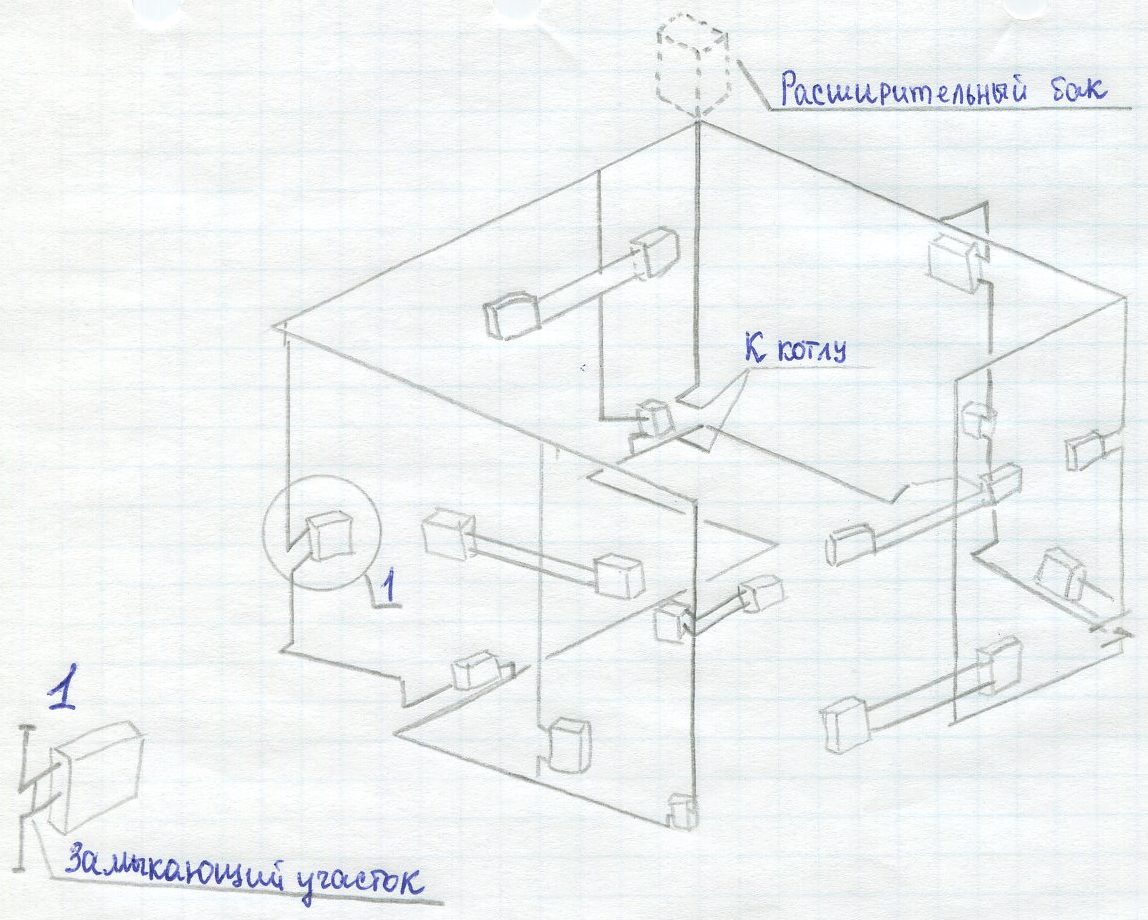 Расширительный бак
К котлу
1
1
Замыкающий участок